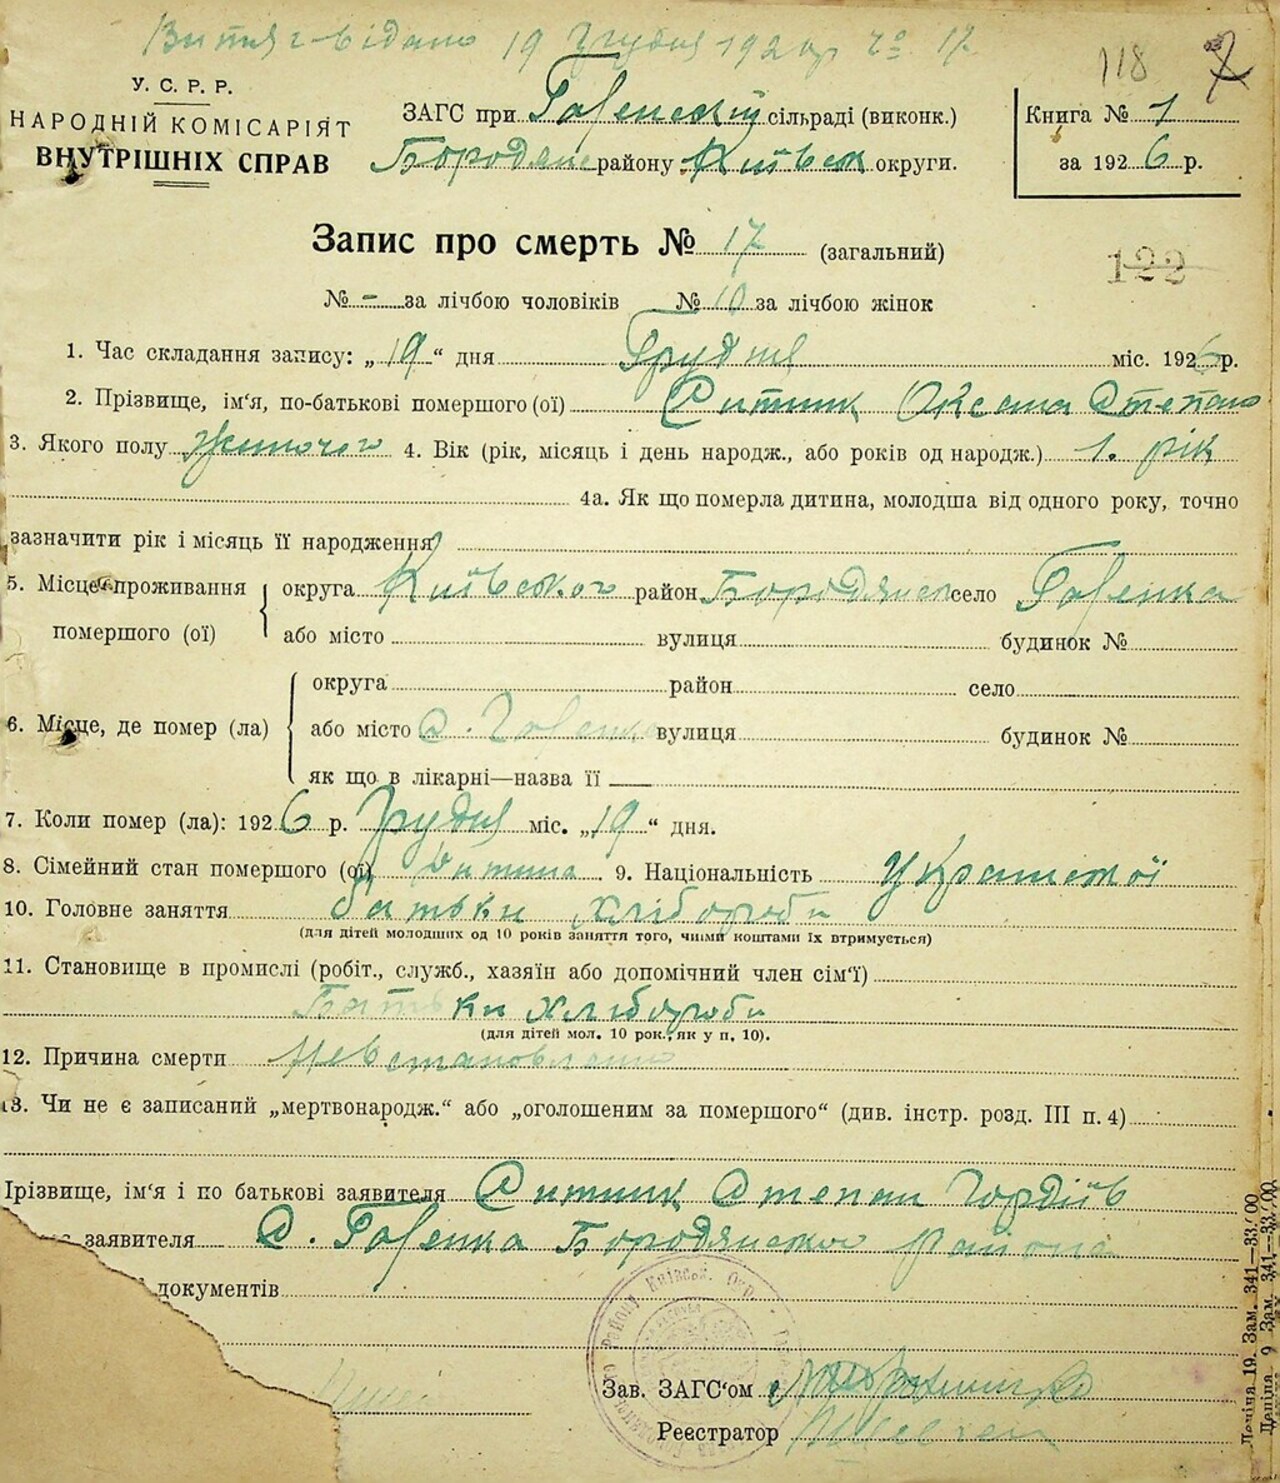 Витяг видано 19 Грудня 1926 р № 17
118
У. С. Р. Р.
НАРОДНІЙ КОМІСАРІЯТ
ВНУТРІШНІХ СПРАВ
ЗАГС при Гавенскій сільраді (виконк.)
Бородянс району Київськ округи.
Книга № 1
за 1926 р.
Запис про смерть № 17 (загальний)
122
№ - за лічбою чоловіків № 10 за лічбою жінок
1. Час складання запису: „19“ дня Грудня міс. 1926 р.
2. Прізвище, ім'я, по-батькові помершого (ої) Ситник Оксана Степано
3. Якого полу жиночого 4. Вік (рік, місяць і день народж., або років од народж.) 1. рік
4а. Як що померла дитина, молодша від одного року, точно
зазначити рік і місяць її народження
5. Місце проживання помершого (ої) округа Київського район Бородянск село Гавенка
або місто вулиця будинок №
6. Місце, де помер (ла) округа район село
або місто с. Гавенка вулиця будинок №
як що в лікарні—назва її
7. Коли помер (ла): 1926 р. Грудня міс. „19“ дня.
8. Сімейний стан помершого (ої) Дитина 9. Національність Украінскої
10. Головне заняття батьки хлібороби
(для дітей молодших од 10 років заняття того, чиїми коштами їх втримується)
11. Становище в промислі (робіт., служб., хазяїн або допомічний член сім'ї)
Батьки хлібороби
(для дітей мол. 10 рок., як у п. 10).
12. Причина смерти Невстановленно
13. Чи не є записаний „мертвонародж.“ або „оголошеним за помершого“ (див. інстр. розд. III п. 4)
Прізвище, ім'я і по батькові заявителя Ситник Степан Гордіїв
заявителя С. Гавенка Бородянского району
документів
Зав. ЗАГС'ом
Реєстратор